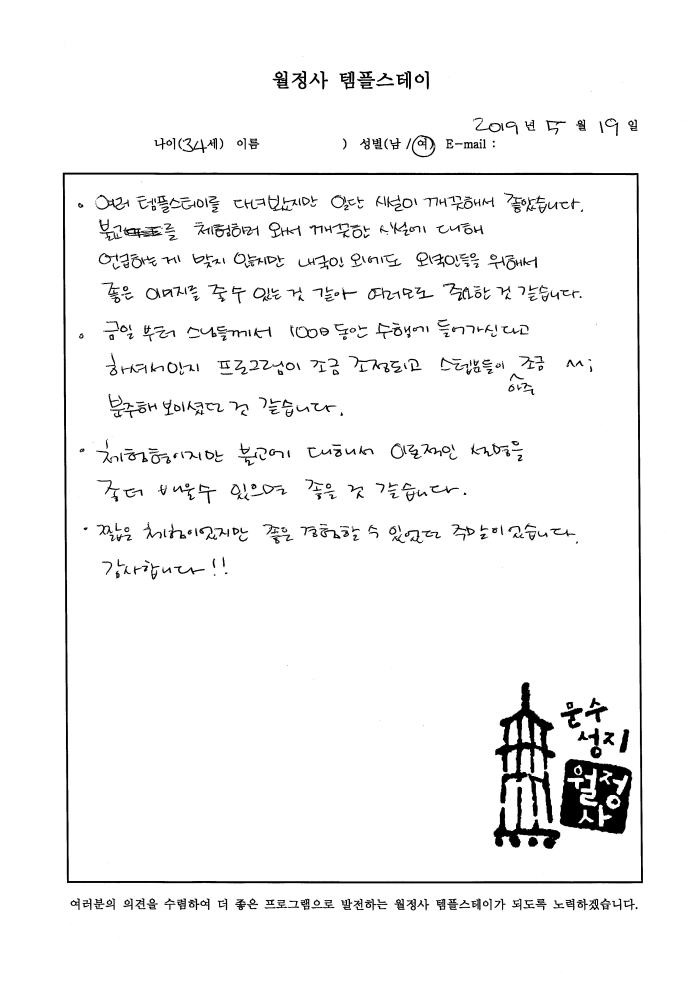 월정사 템플스테이
2019 년 5 월 19 일
나이(34세) 이름 ) 성별(남 / 여) E-mail :
◦ 여러 템플스테이를 다녀봤지만 일단 시설이 깨끗해서 좋았습니다.
불교를 체험하러 와서 깨끗한 시설에 대해
언급하는 게 맞지 않지만 내국인 외에도 외국인들을 위해서
좋은 이미지를 줄 수 있는 것 같아 여러모로 중요한 것 같습니다.
◦ 금일 부터 스님들께서 100일 동안 수행에 들어가신다고
하셔서인지 프로그램이 조금 조정되고 스텝분들이 조금 ^^;
아주
분주해 보이셨던 것 같습니다.
• 체험형이지만 불교에 대해서 이론적인 설명을
좀더 배울수 있으면 좋을 것 같습니다.
• 짧은 체험이었지만 좋은 경험할 수 있었던 주말이었습니다.
감사합니다!!
문수
성지
월정
사
여러분의 의견을 수렴하여 더 좋은 프로그램으로 발전하는 월정사 템플스테이가 되도록 노력하겠습니다.